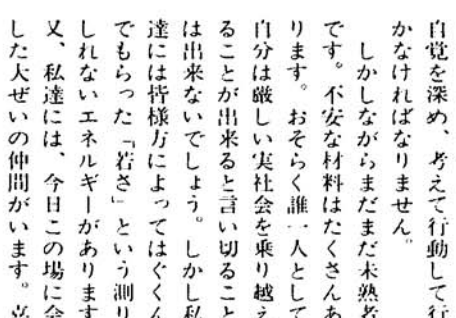 自覚を深め、考えて行動して行
かなければなりません。
しかしながらまだまだ未熟者
です。不安な材料はたくさんあ
ります。おそらく誰一人として
自分は厳しい実社会を乗り越え
ることが出来ると言い切ること
は出来ないでしょう。しかし私
達には皆様方によってはぐくん
でもらった「若さ」という測り
しれないエネルギーがあります
又、私達には、今日この場に会
した大ぜいの仲間がいます。喜